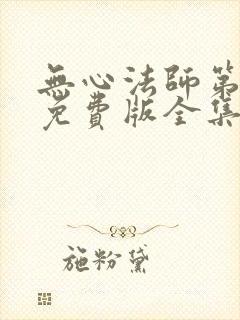 無心法師第
免費版全集
施粉黛